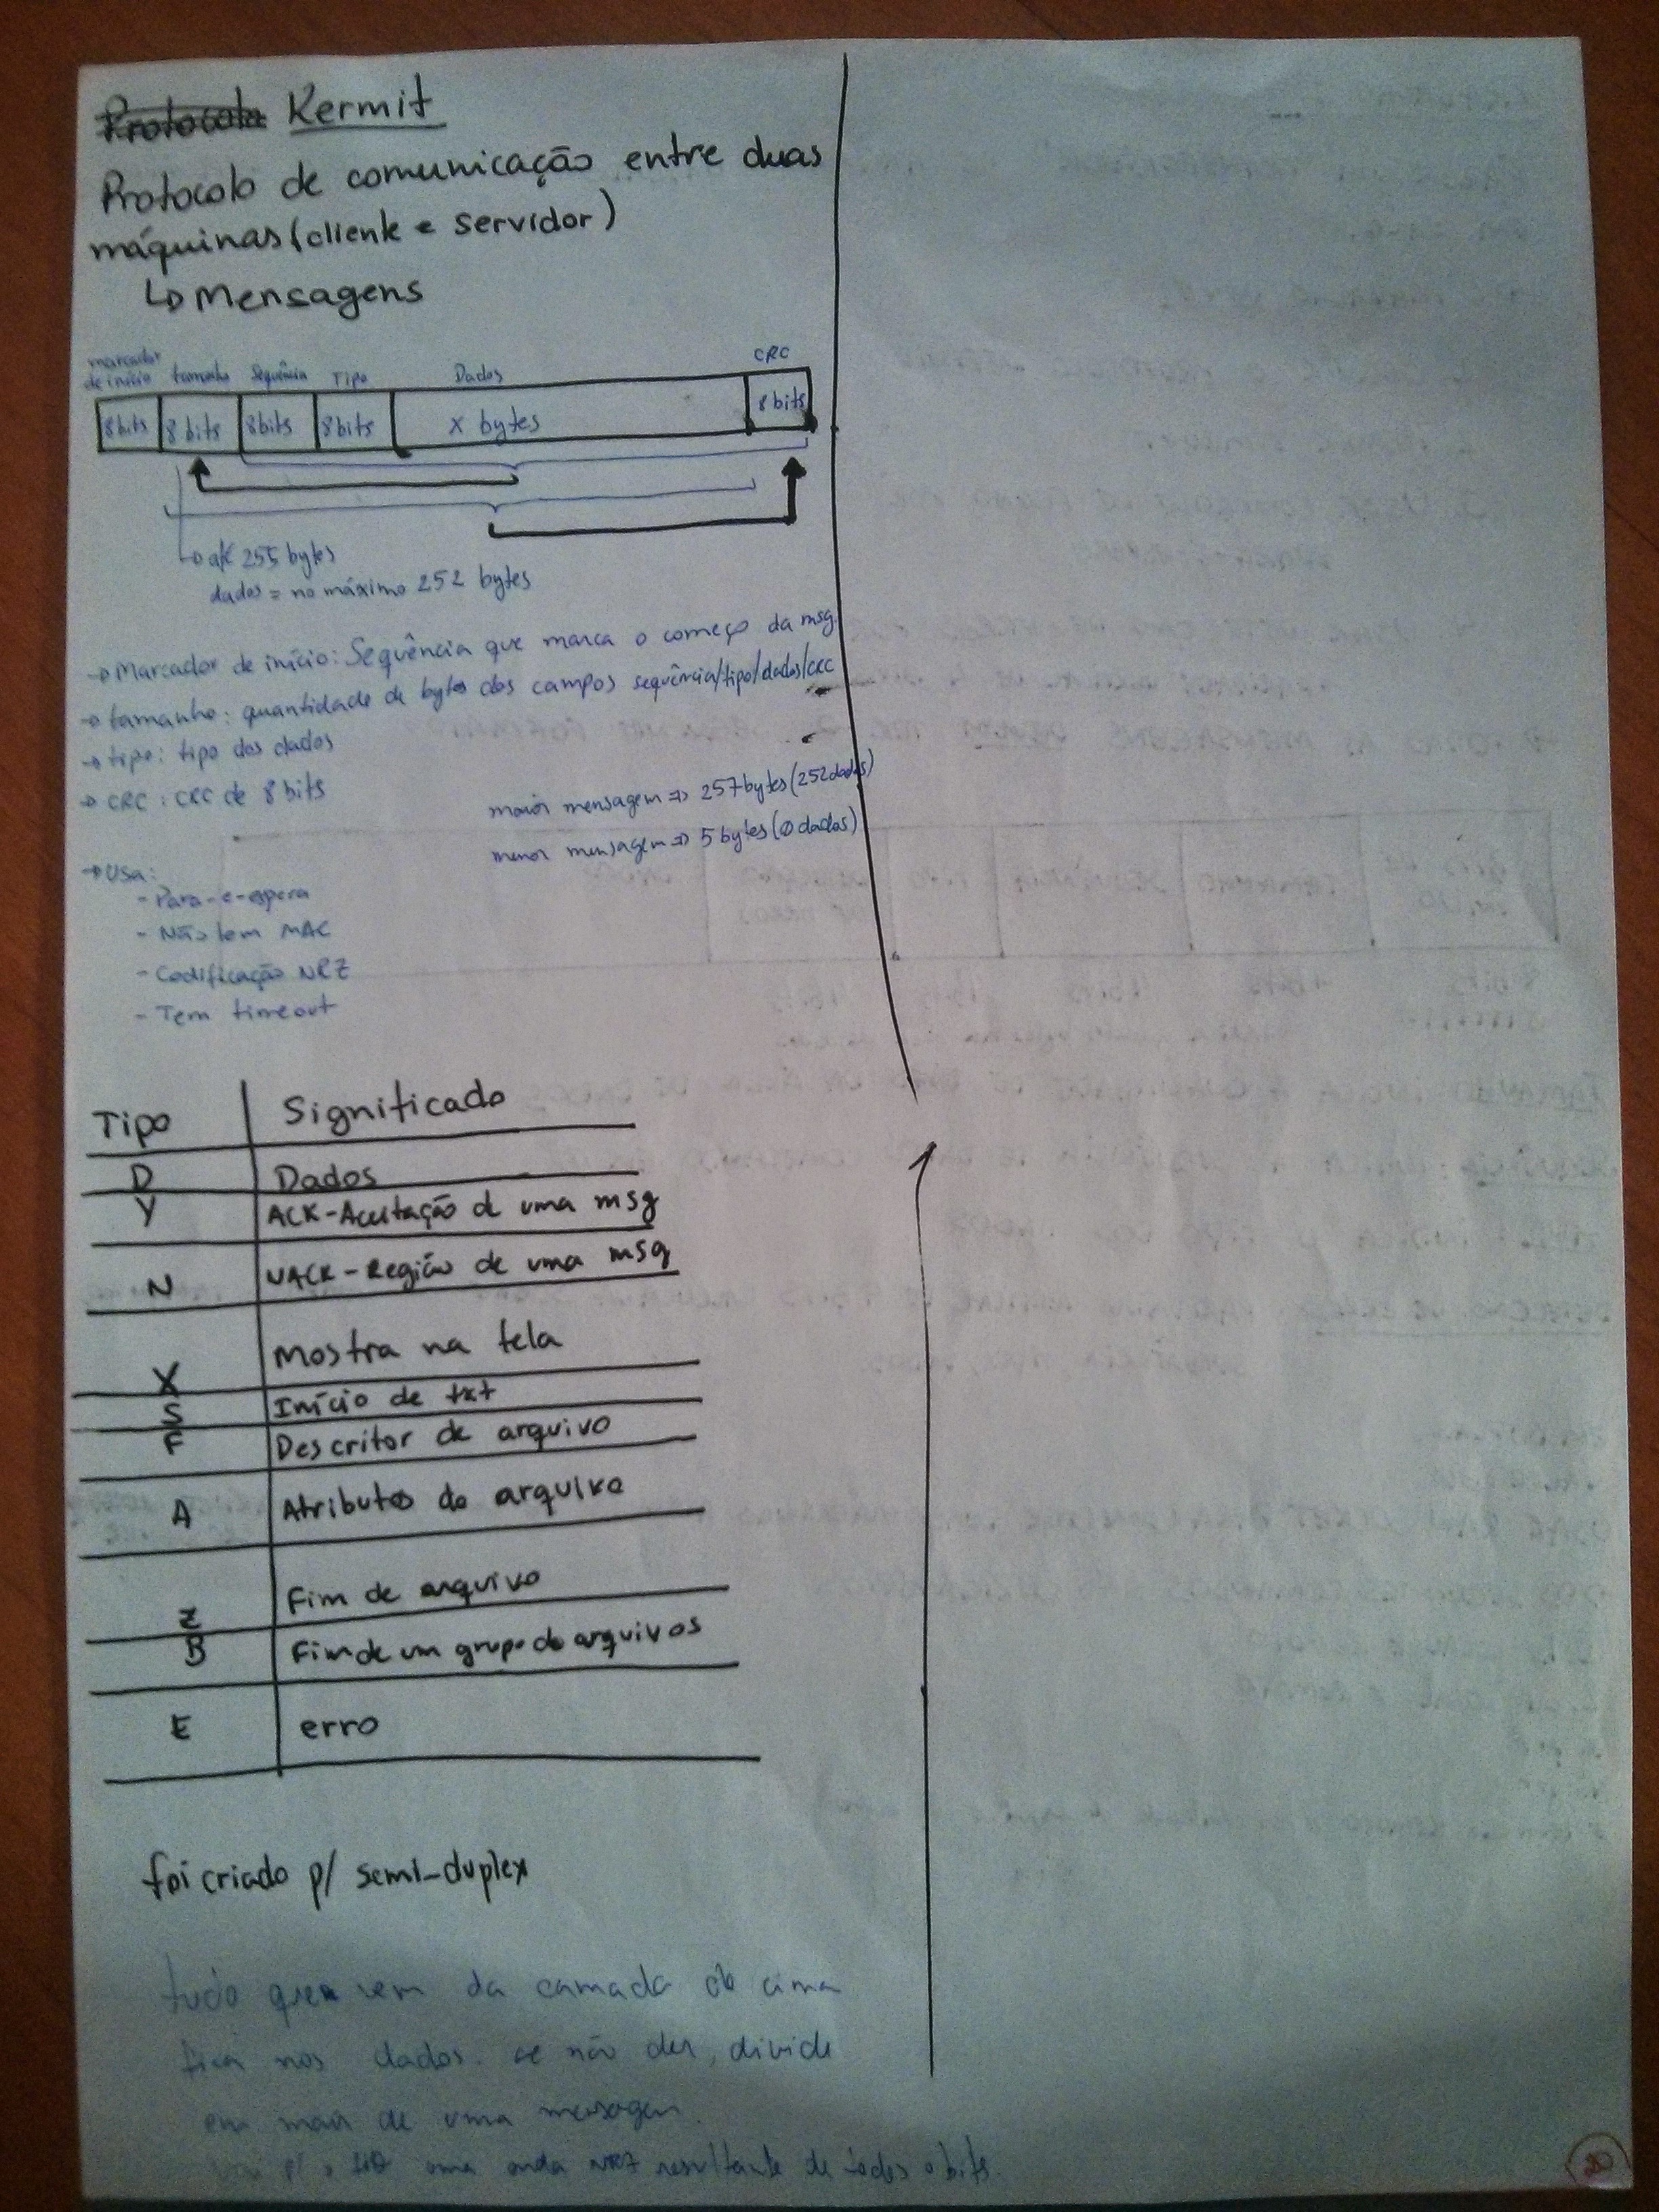 Protocolo Kermit
Protocolo de comunicação entre duas
máquinas (cliente e servidor)
↳ Mensagens
marcador de início tamanho Sequência Tipo Dados CRC
8 bits 8 bits 8 bits 8 bits x bytes 8 bits
até 255 bytes
dados = no máximo 252 bytes
→ Marcador de início: Sequência que marca o começo da msg
→ tamanho: quantidade de bytes dos campos sequência/tipo/dados/CRC
→ tipo: tipo dos dados
→ CRC: CRC de 8 bits
maior mensagem => 257 bytes (252 dados)
menor mensagem => 5 bytes (0 dados)
→ Usa:
- Para-e-espera
- Não tem MAC
- Codificação NRZ
- Tem timeout
Tipo Significado
D Dados
Y ACK-Aceitação de uma msg
N NACK-Região de uma msg
X Mostra na tela
S Início de txt
F Descritor de arquivo
A Atributos do arquivo
Z Fim de arquivo
B Fim de um grupo de arquivos
E erro
foi criado p/ semi-duplex
tudo que vem da camada de cima
fica nos dados. se não der, divide
em mais de uma mensagem.
p/ o fio uma onda NRZ resultante de todos o bits.
20